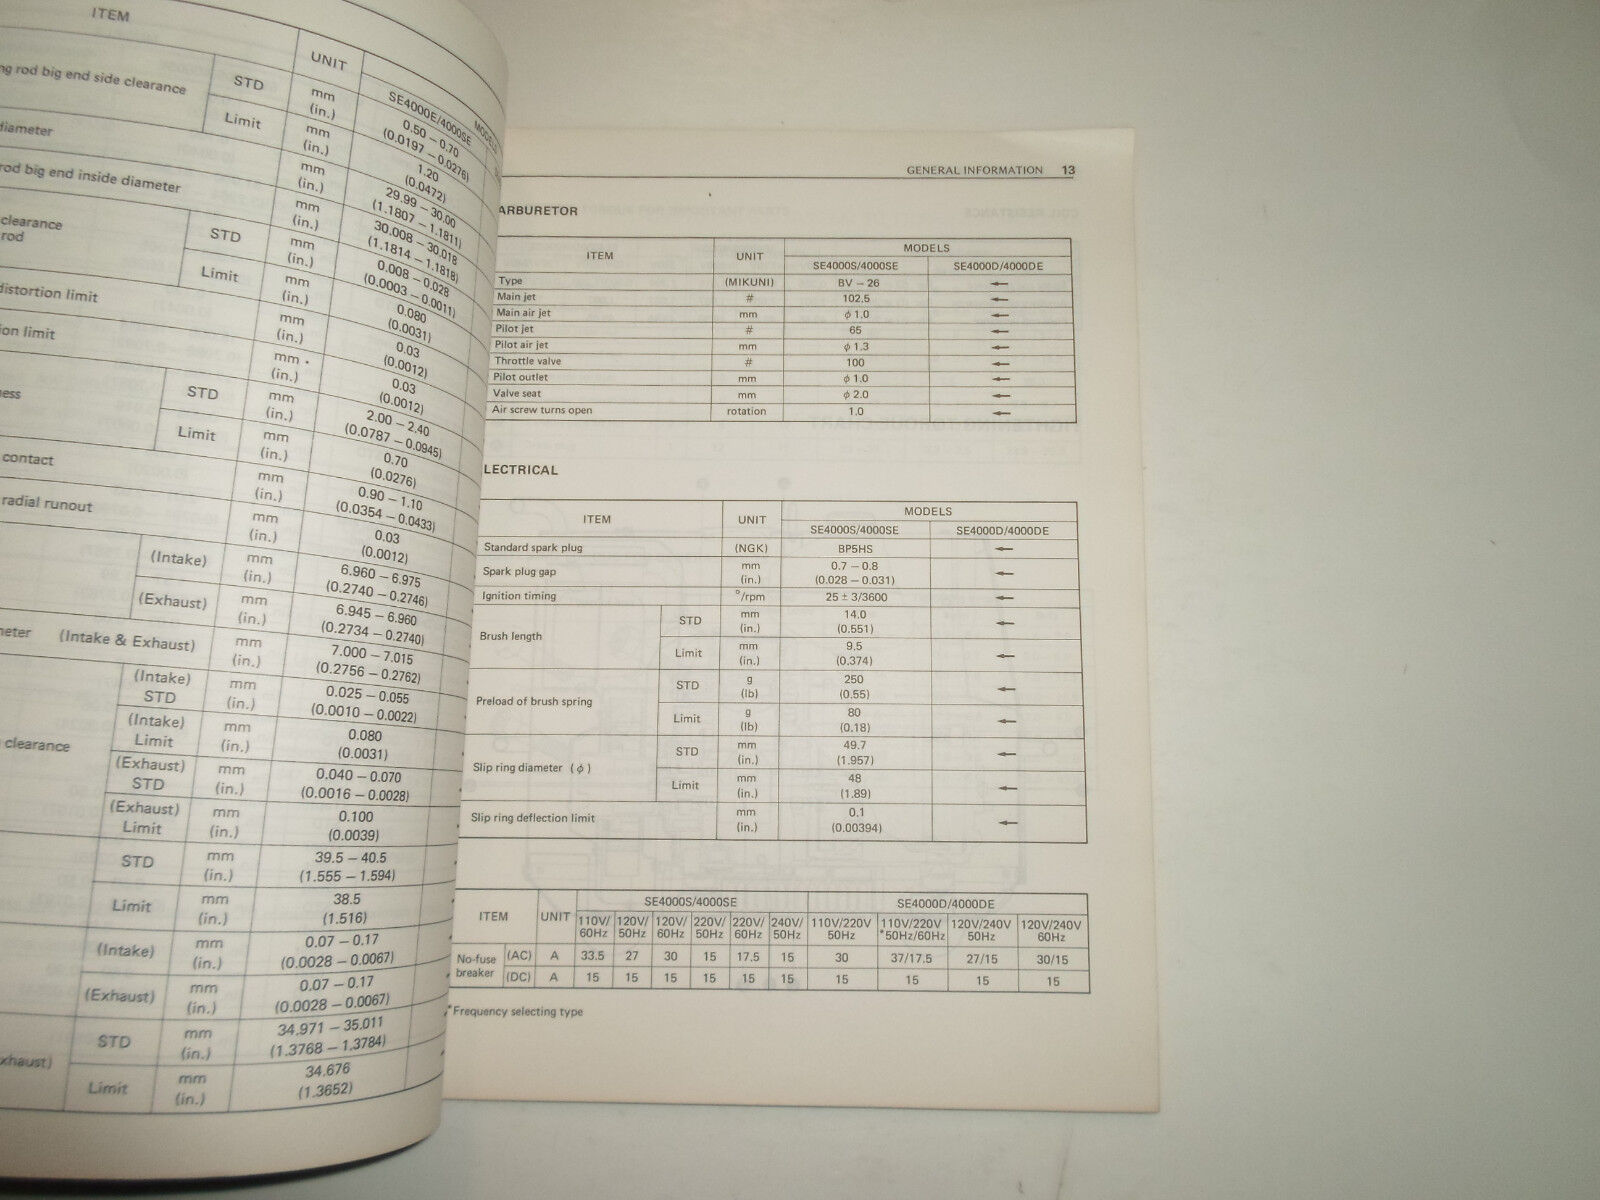 ITEM
UNIT
MODELS
SE4000E/4000SE
rod big end side clearance STD mm 0.50 – 0.70
(in.) (0.0197 – 0.0276)
Limit mm 1.20
(in.) (0.0472)
diameter mm 29.99 – 30.00
(in.) (1.1807 – 1.1811)
rod big end inside diameter mm 30.008 – 30.018
(in.) (1.1814 – 1.1818)
clearance
rod
STD mm 0.008 – 0.028
(in.) (0.0003 – 0.0011)
Limit mm 0.080
(in.) (0.0031)
distortion limit mm 0.03
(in.) (0.0012)
limit mm 0.03
(in.) (0.0012)
STD mm 2.00 – 2.40
(in.) (0.0787 – 0.0945)
Limit mm 0.70
(in.) (0.0276)
contact mm 0.90 – 1.10
(in.) (0.0354 – 0.0433)
radial runout mm 0.03
(in.) (0.0012)
(Intake) mm 6.960 – 6.975
(in.) (0.2740 – 0.2746)
(Exhaust) mm 6.945 – 6.960
(in.) (0.2734 – 0.2740)
(Intake & Exhaust) mm 7.000 – 7.015
(in.) (0.2756 – 0.2762)
clearance
(Intake) STD mm 0.025 – 0.055
(in.) (0.0010 – 0.0022)
(Intake) Limit mm 0.080
(in.) (0.0031)
(Exhaust) STD mm 0.040 – 0.070
(in.) (0.0016 – 0.0028)
(Exhaust) Limit mm 0.100
(in.) (0.0039)
STD mm 39.5 – 40.5
(in.) (1.555 – 1.594)
Limit mm 38.5
(in.) (1.516)
(Intake) mm 0.07 – 0.17
(in.) (0.0028 – 0.0067)
(Exhaust) mm 0.07 – 0.17
(in.) (0.0028 – 0.0067)
STD mm 34.971 – 35.011
(in.) (1.3768 – 1.3784)
xhaust)
Limit mm 34.676
(in.) (1.3652)
GENERAL INFORMATION 13
ARBURETOR
ITEM UNIT MODELS
SE4000S/4000SE SE4000D/4000DE
Type (MIKUNI) BV – 26 ←
Main jet # 102.5 ←
Main air jet mm φ 1.0 ←
Pilot jet # 65 ←
Pilot air jet mm φ 1.3 ←
Throttle valve # 100 ←
Pilot outlet mm φ 1.0 ←
Valve seat mm φ 2.0 ←
Air screw turns open rotation 1.0 ←
LECTRICAL
ITEM UNIT MODELS
SE4000S/4000SE SE4000D/4000DE
Standard spark plug (NGK) BP5HS ←
Spark plug gap mm 0.7 – 0.8 ←
(in.) (0.028 – 0.031)
Ignition timing °/rpm 25 ± 3/3600 ←
Brush length STD mm 14.0 ←
(in.) (0.551)
Limit mm 9.5 ←
(in.) (0.374)
Preload of brush spring STD g 250 ←
(lb) (0.55)
Limit g 80 ←
(lb) (0.18)
Slip ring diameter (φ) STD mm 49.7 ←
(in.) (1.957)
Limit mm 48 ←
(in.) (1.89)
Slip ring deflection limit mm 0.1 ←
(in.) (0.00394)
ITEM UNIT SE4000S/4000SE SE4000D/4000DE
110V/ 120V/ 120V/ 220V/ 220V/ 240V/ 110V/220V 110V/220V 120V/240V 120V/240V
60Hz 50Hz 60Hz 50Hz 60Hz 50Hz 50Hz *50Hz/60Hz 50Hz 60Hz
No-fuse (AC) A 33.5 27 30 15 17.5 15 30 37/17.5 27/15 30/15
breaker (DC) A 15 15 15 15 15 15 15 15 15 15
*Frequency selecting type